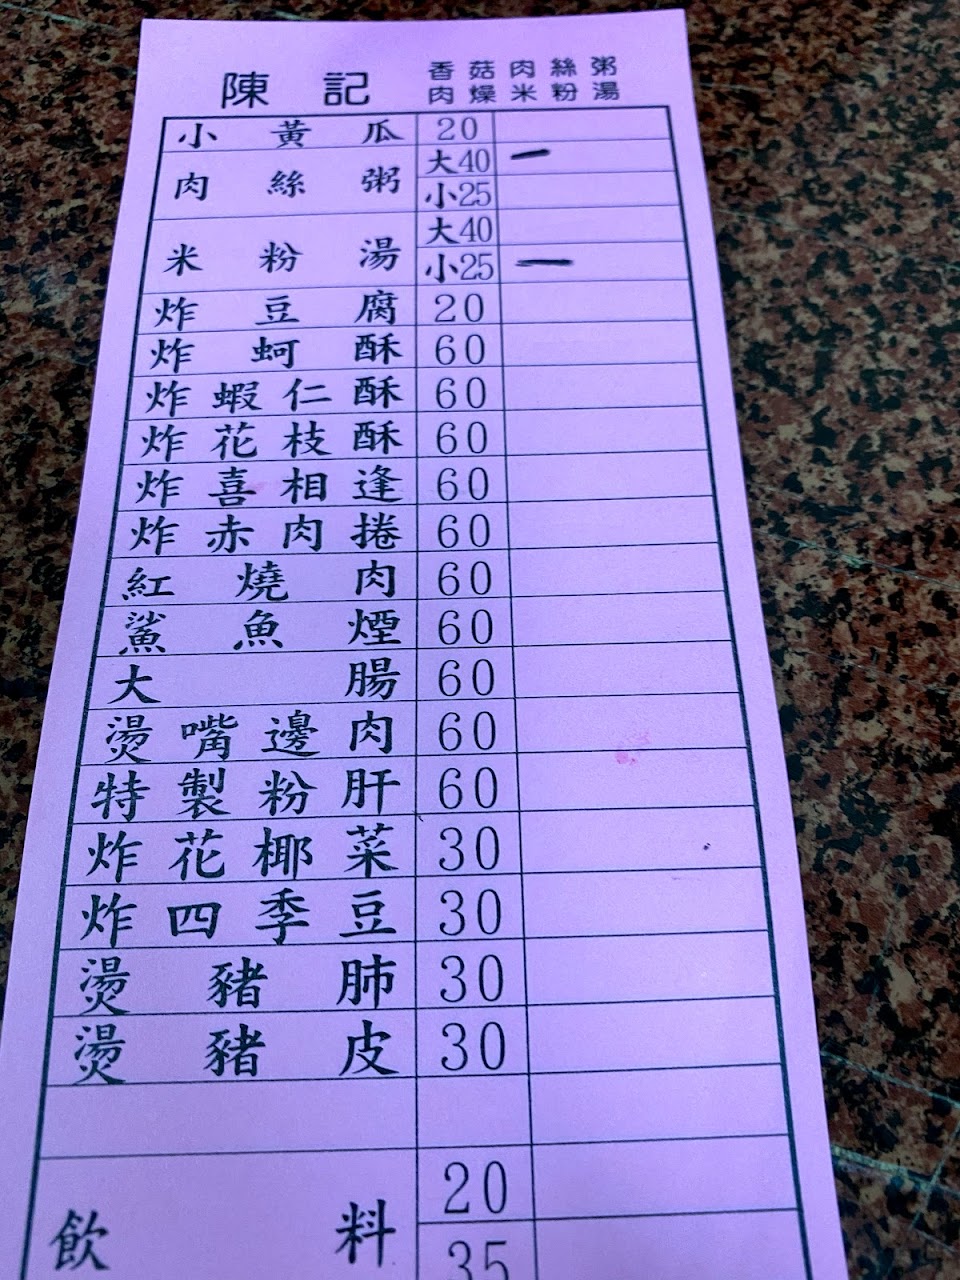 陳記 香菇肉絲粥
肉燥米粉湯
小黃瓜 20
肉絲粥 大40 一
小25
米粉湯 大40
小25 一
炸豆腐 20
炸蚵酥 60
炸蝦仁酥 60
炸花枝酥 60
炸喜相逢 60
炸赤肉捲 60
紅燒肉 60
鯊魚煙 60
大腸 60
燙嘴邊肉 60
特製粉肝 60
炸花椰菜 30
炸四季豆 30
燙豬肺 30
燙豬皮 30
飲料 20
35